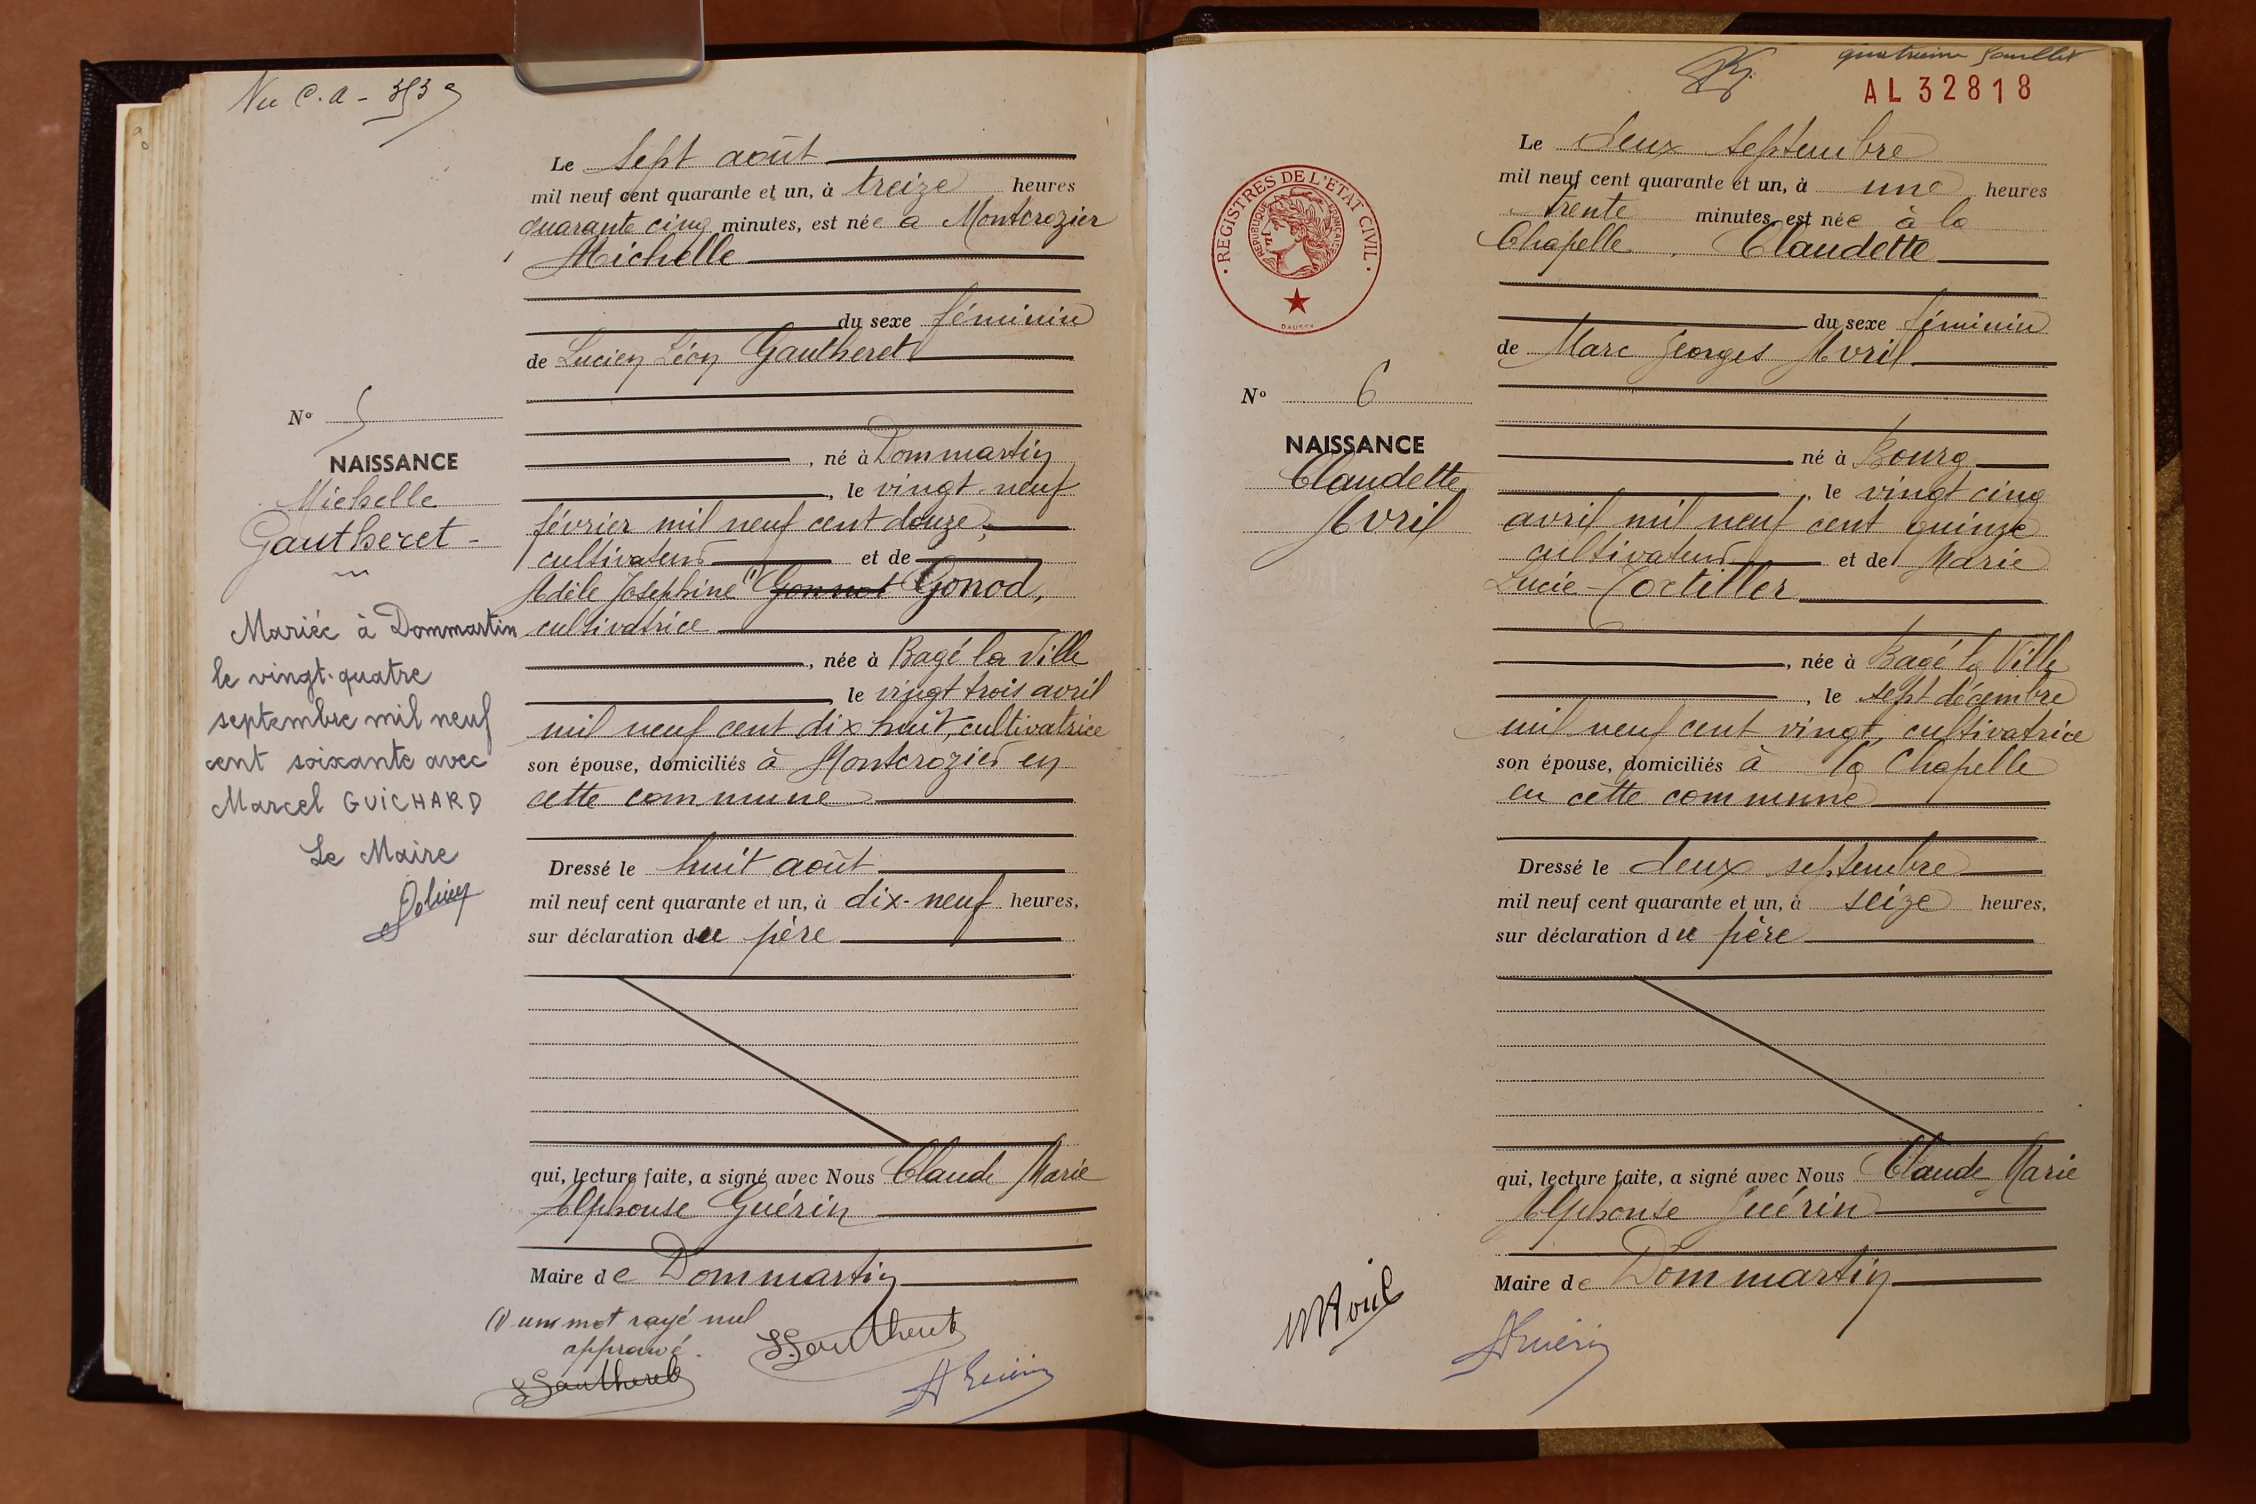 Le sept août
mil neuf cent quarante et un, à treize heures
quarante cinq minutes, est née à Montcrozier
Michelle
du sexe féminin
de Lucien Léon Gautheret
Nº 5
NAISSANCE
Michelle
Gautheret
, né à Dommartin
, le vingt-neuf
février mil neuf cent douze,
cultivateur et de
Adèle Joséphine (1) Gonnot Gonod,
cultivatrice
, née à Bagé la Ville
, le vingt trois avril
mil neuf cent dix huit, cultivatrice
son épouse, domiciliés à Montcrozier en
cette commune
Mariée à Dommartin
le vingt-quatre
septembre mil neuf
cent soixante avec
Marcel GUICHARD
Le Maire
Dressé le huit août
mil neuf cent quarante et un, à dix-neuf heures,
sur déclaration du père
qui, lecture faite, a signé avec Nous Claude Marie
Alphonse Guérin
Maire de Dommartin
(1) un mot rayé nul
approuvé.
LGautheret
LGautheret
AGuérin
quatrième feuillet
AL32818
REGISTRES DE L'ETAT CIVIL
REPUBLIQUE FRANCAISE
Le deux septembre
mil neuf cent quarante et un, à une heures
trente minutes, est née à la
Chapelle, Claudette
du sexe féminin
de Marc Georges Avril
Nº 6
NAISSANCE
Claudette
Avril
né à Bourg
, le vingt cinq
avril mil neuf cent quinze
cultivateur et de Marie
Lucie Cortiller
, née à Bagé la Ville
, le sept décembre
mil neuf cent vingt, cultivatrice
son épouse, domiciliés à la Chapelle
en cette commune
Dressé le deux septembre
mil neuf cent quarante et un, à seize heures,
sur déclaration du père
qui, lecture faite, a signé avec Nous Claude Marie
Alphonse Guérin
Maire de Dommartin
MAvril
AGuérin